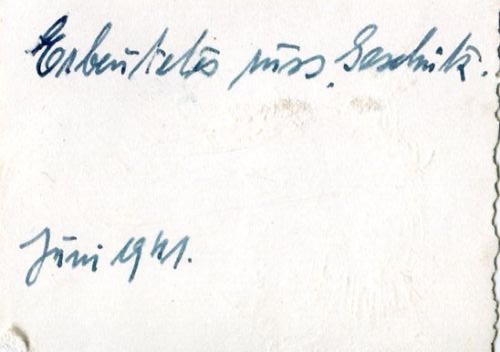 Erbeutetes russ. Geschütz.
Juni 1941.